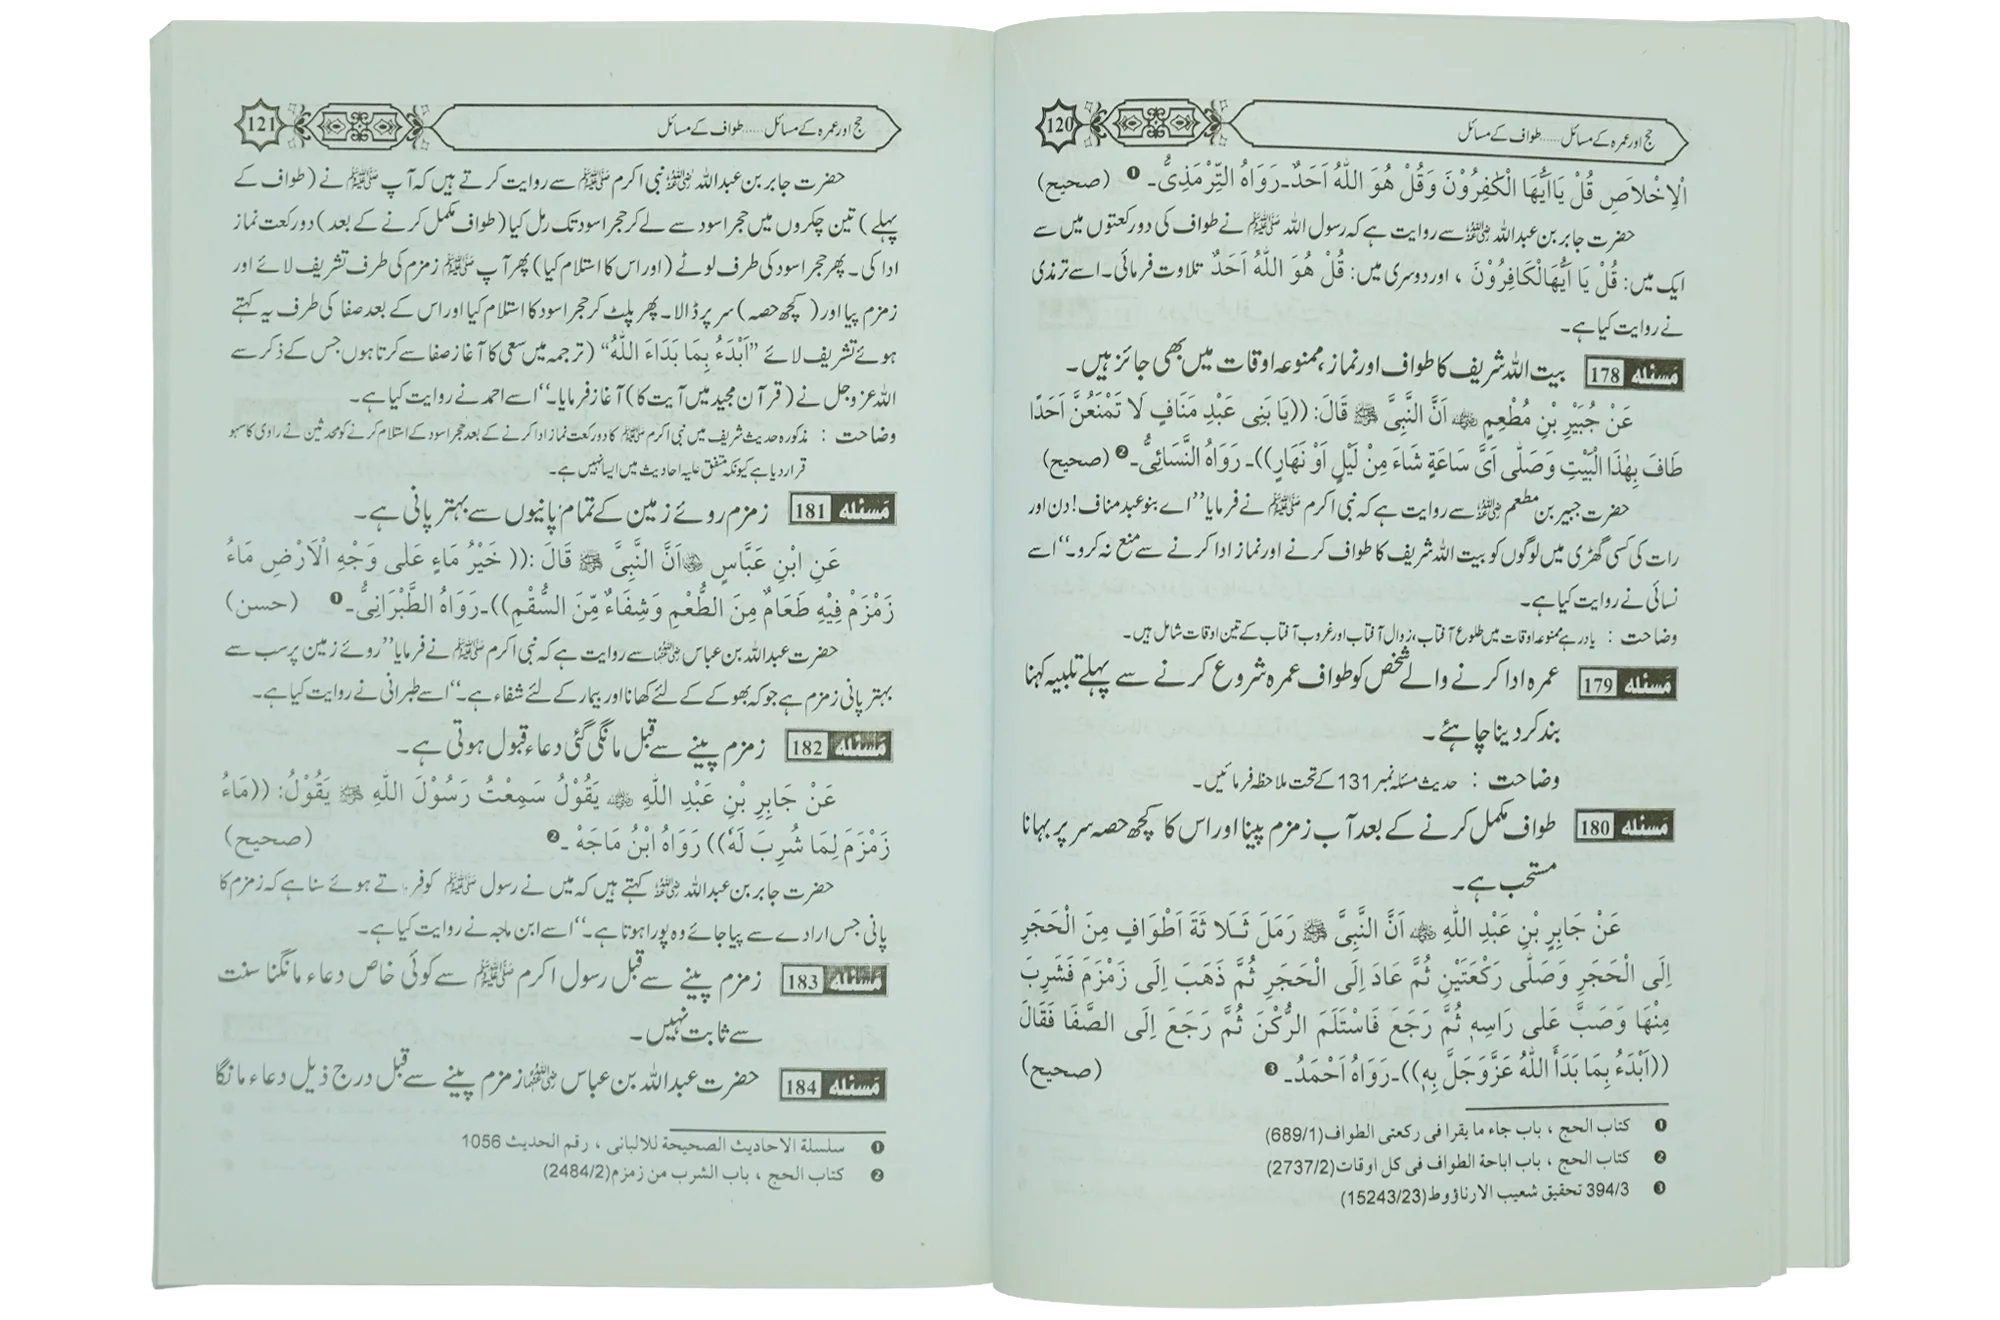 حج اور عمرہ کے مسائل ...... طواف کے مسائل
120
الْاِخْلَاصِ قُلْ يَااَيُّهَا الْكٰفِرُوْنَ وَقُلْ هُوَ اللّٰهُ اَحَدٌ۔ رَوَاهُ التِّرْمَذِىُّ۔ ❶ (صحيح)
حضرت جابر بن عبداللہ ؓ سے روایت ہے کہ رسول اللہ ﷺ نے طواف کی دو رکعتوں میں سے
ایک میں: قُلْ يَا اَيُّهَالْكَافِرُوْنَ ، اور دوسری میں: قُلْ هُوَ اللّٰهُ اَحَدٌ تلاوت فرمائی۔ اسے ترمذی
نے روایت کیا ہے۔
مَسئله 178 بیت اللہ شریف کا طواف اور نماز، ممنوعہ اوقات میں بھی جائز ہیں۔
عَنْ جُبَيْرِ بْنِ مُطْعِمٍ ؓ اَنَّ النَّبِىَّ ﷺ قَالَ: ((يَا بَنِى عَبْدِ مَنَافٍ لَا تَمْنَعُنَّ اَحَدًا
طَافَ بِهٰذَا الْبَيْتِ وَصَلّٰى اَىَّ سَاعَةٍ شَاءَ مِنْ لَيْلٍ اَوْ نَهَارٍ))۔ رَوَاهُ النَّسَائِىُّ۔ ❷ (صحيح)
حضرت جبیر بن مطعم ؓ سے روایت ہے کہ نبی اکرم ﷺ نے فرمایا ’’اے بنو عبد مناف! دن اور
رات کی کسی گھڑی میں لوگوں کو بیت اللہ شریف کا طواف کرنے اور نماز ادا کرنے سے منع نہ کرو۔‘‘ اسے
نسائی نے روایت کیا ہے۔
وضاحت : یاد رہے ممنوعہ اوقات میں طلوع آفتاب، زوال آفتاب اور غروب آفتاب کے تین اوقات شامل ہیں۔
مَسئله 179 عمرہ ادا کرنے والے شخص کو طواف عمرہ شروع کرنے سے پہلے تلبیہ کہنا
بند کر دینا چاہئے۔
وضاحت : حدیث مسئلہ نمبر 131 کے تحت ملاحظہ فرمائیں۔
مَسئله 180 طواف مکمل کرنے کے بعد آب زمزم پینا اور اس کا کچھ حصہ سر پر بہانا
مستحب ہے۔
عَنْ جَابِرِ بْنِ عَبْدِ اللّٰهِ ؓ اَنَّ النَّبِىَّ ﷺ رَمَلَ ثَلَا ثَةَ اَطْوَافٍ مِنَ الْحَجَرِ
اِلَى الْحَجَرِ وَصَلّٰى رَكْعَتَيْنِ ثُمَّ عَادَ اِلَى الْحَجَرِ ثُمَّ ذَهَبَ اِلٰى زَمْزَمَ فَشَرِبَ
مِنْهَا وَصَبَّ عَلٰى رَاسِهٖ ثُمَّ رَجَعَ فَاسْتَلَمَ الرُّكْنَ ثُمَّ رَجَعَ اِلَى الصَّفَا فَقَالَ
((اَبْدَءُ بِمَا بَدَأَ اللّٰهُ عَزَّوَجَلَّ بِهٖ))۔ رَوَاهُ اَحْمَدُ۔ ❸ (صحيح)
❶ كتاب الحج ، باب جاء ما يقرا فى ركعتى الطواف (689/1)
❷ كتاب الحج ، باب اباحة الطواف فى كل اوقات (2737/2)
❸ 394/3 تحقيق شعيب الارناؤوط (15243/23)
حج اور عمرہ کے مسائل ...... طواف کے مسائل
121
حضرت جابر بن عبداللہ ؓ نبی اکرم ﷺ سے روایت کرتے ہیں کہ آپ ﷺ نے (طواف کے
پہلے) تین چکروں میں حجر اسود سے لے کر حجر اسود تک رمل کیا (طواف مکمل کرنے کے بعد) دو رکعت نماز
ادا کی۔ پھر حجر اسود کی طرف لوٹے (اور اس کا استلام کیا) پھر آپ ﷺ زمزم کی طرف تشریف لائے اور
زمزم پیا اور (کچھ حصہ) سر پر ڈالا۔ پھر پلٹ کر حجر اسود کا استلام کیا اور اس کے بعد صفا کی طرف یہ کہتے
ہوئے تشریف لائے ’’اَبْدَءُ بِمَا بَدَاَءَ اللّٰهُ‘‘ (ترجمہ میں سعی کا آغاز صفا سے کرتا ہوں جس کے ذکر سے
اللہ عز وجل نے (قرآن مجید میں آیت کا) آغاز فرمایا۔‘‘ اسے احمد نے روایت کیا ہے۔
وضاحت : مذکورہ حدیث شریف میں نبی اکرم ﷺ کا دو رکعت نماز ادا کرنے کے بعد حجر اسود کے استلام کرنے کو محدثین نے راوی کا سہو
قرار دیا ہے کیونکہ متفق علیہ احادیث میں ایسا نہیں ہے۔
مَسئله 181 زمزم روئے زمین کے تمام پانیوں سے بہتر پانی ہے۔
عَنِ ابْنِ عَبَّاسٍ ؓ اَنَّ النَّبِىَّ ﷺ قَالَ :(( خَيْرُ مَاءٍ عَلٰى وَجْهِ الْاَرْضِ مَاءُ
زَمْزَمْ فِيْهِ طَعَامٌ مِنَ الطُّعْمِ وَشِفَاءٌ مِّنَ السُّقْمِ))۔ رَوَاهُ الطَّبْرَانِىُّ۔ ❶ (حسن)
حضرت عبداللہ بن عباس ؓ سے روایت ہے کہ نبی اکرم ﷺ نے فرمایا ’’روئے زمین پر سب سے
بہتر پانی زمزم ہے جو کہ بھوکے کے لئے کھانا اور بیمار کے لئے شفاء ہے۔‘‘ اسے طبرانی نے روایت کیا ہے۔
مَسئله 182 زمزم پینے سے قبل مانگی گئی دعاء قبول ہوتی ہے۔
عَنْ جَابِرِ بْنِ عَبْدِ اللّٰهِ ؓ يَقُوْلُ سَمِعْتُ رَسُوْلَ اللّٰهِ ﷺ يَقُوْلُ: ((مَاءُ
زَمْزَمَ لِمَا شُرِبَ لَهٗ)) رَوَاهُ ابْنُ مَاجَهْ۔ ❷ (صحيح)
حضرت جابر بن عبداللہ ؓ کہتے ہیں کہ میں نے رسول ﷺ کو فرماتے ہوئے سنا ہے کہ زمزم کا
پانی جس ارادے سے پیا جائے وہ پورا ہوتا ہے۔‘‘ اسے ابن ماجہ نے روایت کیا ہے۔
مَسئله 183 زمزم پینے سے قبل رسول اکرم ﷺ سے کوئی خاص دعاء مانگنا سنت
سے ثابت نہیں۔
مَسئله 184 حضرت عبداللہ بن عباس ؓ زمزم پینے سے قبل درج ذیل دعاء مانگا
❶ سلسلة الاحاديث الصحيحة للالبانى ، رقم الحديث 1056
❷ كتاب الحج ، باب الشرب من زمزم (2484/2)